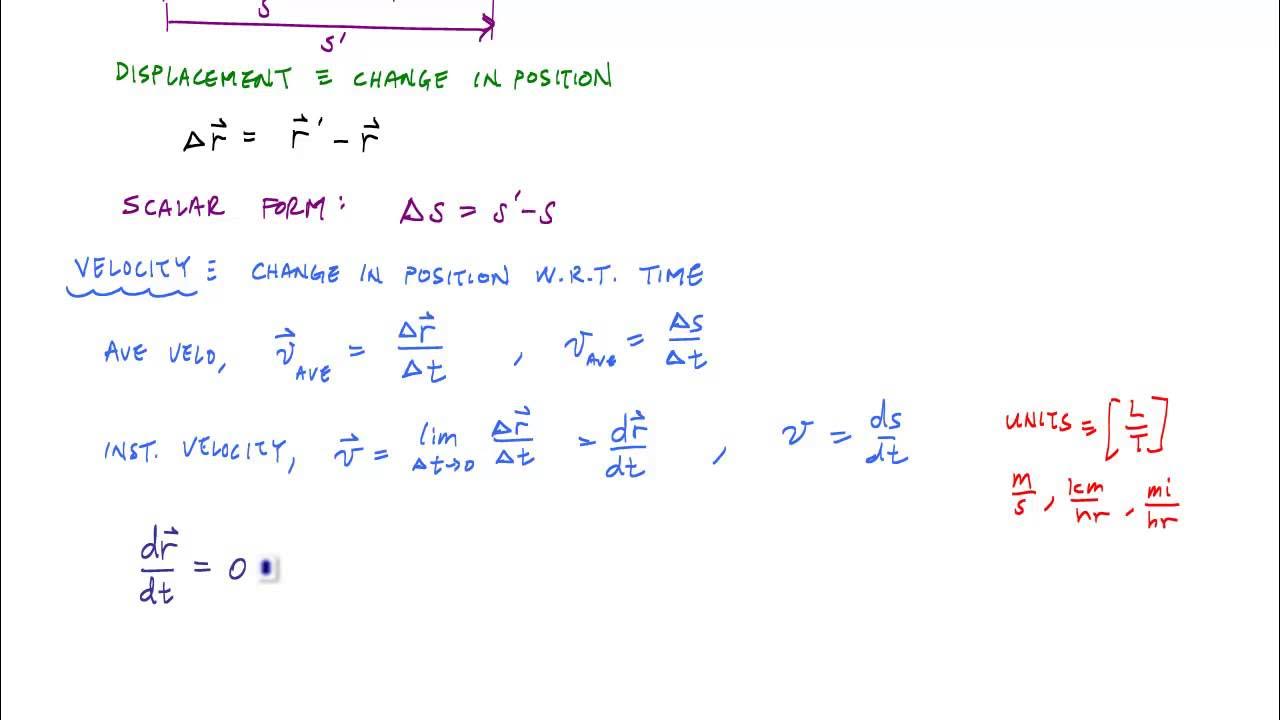 s
s'
DISPLACEMENT ≡ CHANGE IN POSITION
Δr⃗ = r⃗' - r⃗
SCALAR FORM: Δs = s' - s
VELOCITY ≡ CHANGE IN POSITION W.R.T. TIME
AVE VELO, v⃗_AVE = Δr⃗/Δt , v_AVE = Δs/Δt
INST. VELOCITY, v⃗ = lim_{Δt→0} Δr⃗/Δt = dr⃗/dt , v = ds/dt
UNITS ≡ [L/T]
m/s , km/hr , mi/hr
dr⃗/dt = 0